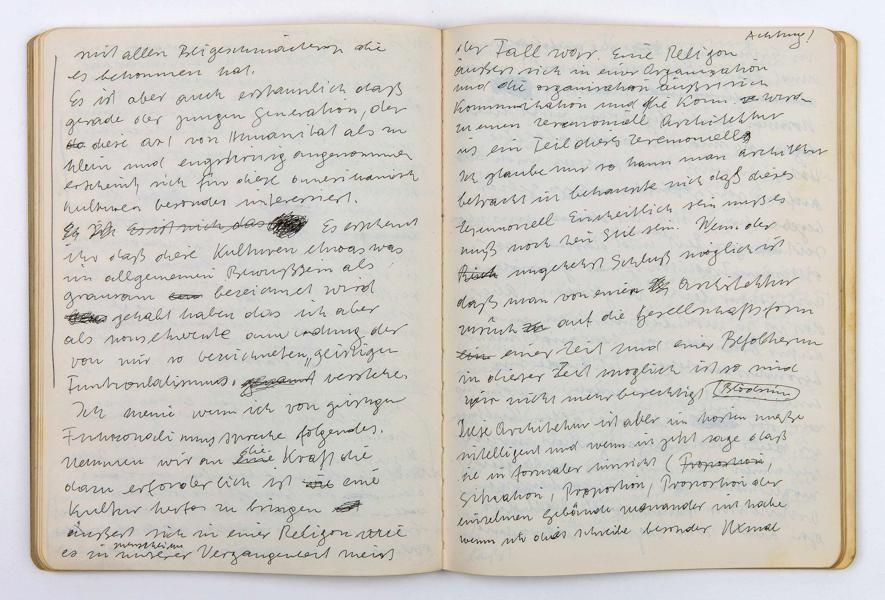 mit allen Beigeschmäckern die
es bekommen hat.
Es ist aber auch erstaunlich daß
gerade der jungen Generation, der
diese art von Humanität als zu
klein und engstirnig angenommen
erscheint sich für diese amerikanisch
Kulturen besonders interessiert.
Es Ich Es ist nich das Es erscheint
ihr daß diese Kulturen etwas was
im allgemeinen Bewußtsein als
grausam bezeichnet wird
gehabt haben das ich aber
als konsequente anwendung der
von mir so bezeichneten „geistigen
Funktionalismus. genannt verstehe.
Ich meine wenn ich von geistigen
Funktionalismus spreche folgendes.
Nemmen wir an eine die Kraft die
dazu erforderlich ist eine
Kultur hervor zu bringen
äußert sich in einer Religion wie
es in menschlichen unserer Vergangenheit meist
Achtung!
der Fall war. Eine Religion
äußert sich in einer Organisation
und die organisation äußert sich
Kommunikation und die Kom. wird
zu einem zeremoniell Architektur
ist ein Teil dieses Zeremoniells
Ich glaube nur so kann man architektur
betracht ich behaupte nich daß dieses
Zeremoniell Einheitlich sein muß es
muß noch kein Stil sein. Wenn der
umgekehrt Schluß möglich ist
daß man von einer Architektur
auf die Gesellschaftsform
ein einer Zeit und einer Befölkerun
in dieser Zeit möglich ist so sind
wir nicht mehr berechtigt (Blödsinn)
Diese Architektur ist aber im hohen maße
intelligent und wenn ich jetzt sage daß
sie in formaler hinsicht (Proportion,
Situation, Proportion, Proportion der
einzelnen Gebäude zueinander ich habe
wenn ich das schreibe besonders Uxmal